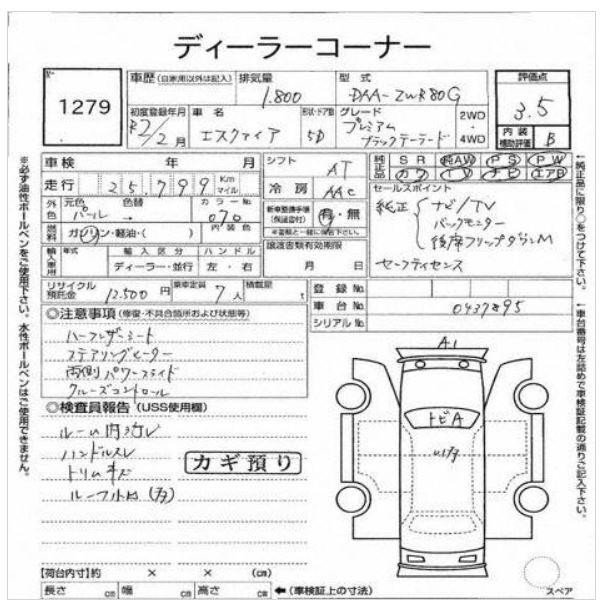 ディーラーコーナー
No. 1279
車歴 (自家用以外は記入) 排気量 1.800
型式 DAA-ZWR80G
評価点 3.5
内装補助評価 B
初度登録年月 R2/2月
車名 エスクァイア
形状・ドア数 5D
グレード プレミアム ブラックテーラード
2WD・4WD
車検 年 月
走行 25,799 Km マイル
シフト AT
冷房 AAC
純正品 SR 純AW PS PW
カワ TV ナビ エアB
外色 元色 パール→ 色替 カラーNo. 070
内装色
燃料 ガソリン・軽油・( )
新車整備手帳(保証書付) 有・無
※書類と一緒に保管下さい。
セールスポイント
純正 ナビ/TV
バックモニター
後席フリップダウンM
セーフティセンス
輸入車用 年式 輸入区分 ハンドル
ディーラー・並行 左・右
譲渡書類有効期限
月 日
リサイクル預託金 12.500 円
乗車定員 7人
積載量 t
登録No.
車台No. 0437895
シリアルNo.
◎注意事項 (修復・不具合箇所および状態等)
ハーフレザーシート
ステアリングヒーター
両側パワースライド
クルーズコントロール
◎検査員報告 (USS使用欄)
ルーム内汚レ
ハンドルスレ
トリムキズ
カギ預り
A1
トビA
【荷台内寸】約 × × (cm)
長さ cm 幅 cm 高さ cm ←(車検証上の寸法)
スペア
※必ず油性ボールペンをご使用下さい。水性ボールペンはご使用できません。
←純正品に限り○をつけて下さい。
←車台番号は左詰めで車検証記載の通りご記入下さい。